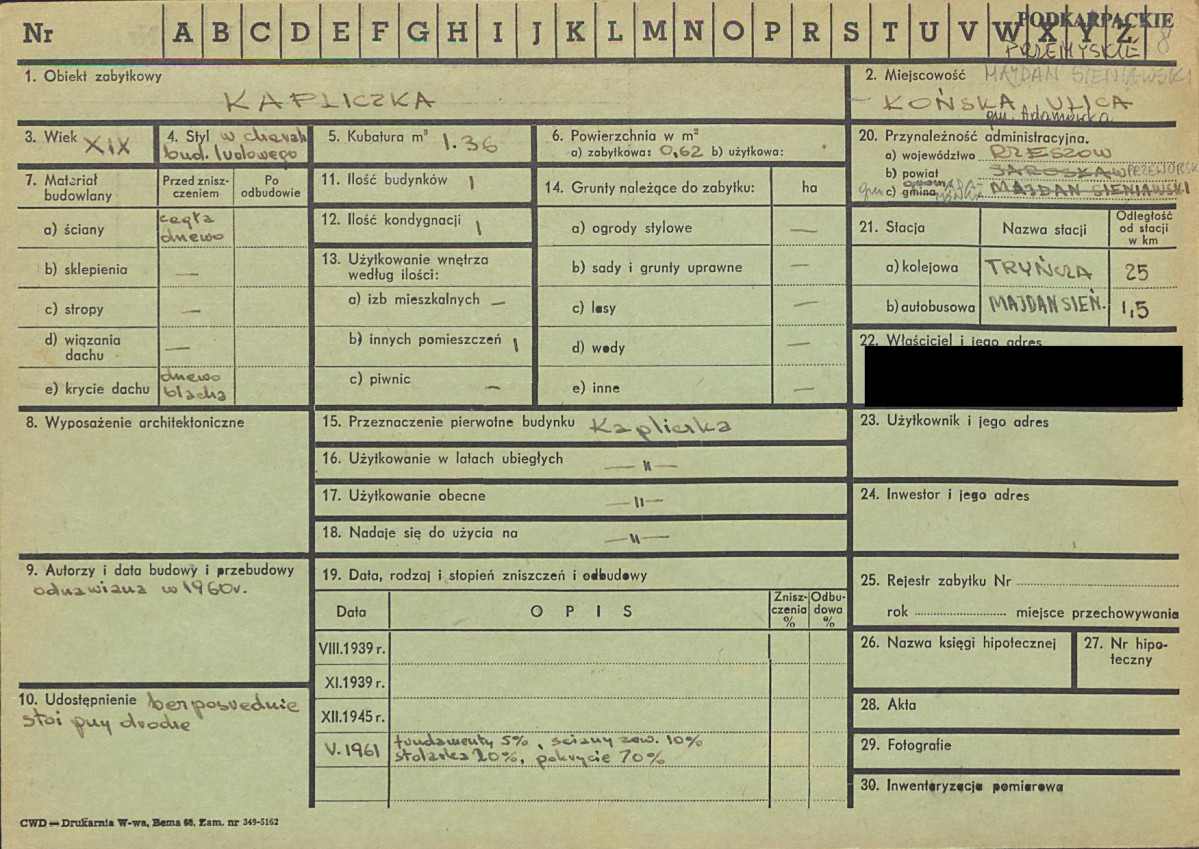 Nr A B C D E F G H I J K L M N O P R S T U V W X Y Z
PODKARPACKIE
PRZEMYSKIE 8
1. Obiekt zabytkowy
KAPLICZKA
2. Miejscowość MAJDAN SIENIAWSKI
KOŃSKA ULICA
gm. Adamówka
3. Wiek XIX
4. Styl w charak
bud. ludowego
5. Kubatura m³ 1.36
6. Powierzchnia w m²
a) zabytkowa: 0,62 b) użytkowa:
20. Przynależność administracyjna.
a) województwo RZESZÓW
b) powiat JAROSŁAW PRZEWORSK
c) gmina MAJDAN SIENIAWSKI
7. Materiał budowlany
Przed zniszczeniem
Po odbudowie
a) ściany cegła drzewo
b) sklepienia —
c) stropy —
d) wiązania dachu —
e) krycie dachu drzewo blacha
11. Ilość budynków 1
12. Ilość kondygnacji 1
13. Użytkowanie wnętrza
według ilości:
a) izb mieszkalnych —
b) innych pomieszczeń 1
c) piwnic —
14. Grunty należące do zabytku: ha
a) ogrody stylowe —
b) sady i grunty uprawne —
c) lasy —
d) wody —
e) inne —
21. Stacja Nazwa stacji Odległość od stacji w km
a) kolejowa TRYŃCZA 25
b) autobusowa MAJDAN SIEN. 1,5
22. Właściciel i jego adres
8. Wyposażenie architektoniczne
15. Przeznaczenie pierwotne budynku Kapliczka
16. Użytkowanie w latach ubiegłych —"—
17. Użytkowanie obecne —"—
18. Nadaje się do użycia na —"—
23. Użytkownik i jego adres
24. Inwestor i jego adres
9. Autorzy i data budowy i przebudowy
odnawiana w 1960r.
10. Udostępnienie bezpośrednie
stoi przy drodze
19. Data, rodzaj i stopień zniszczeń i odbudowy
Data OPIS Zniszczenia % Odbudowa %
VIII.1939 r.
XI.1939 r.
XII.1945 r.
V.1961 fundamenty 5%, ściany zew. 10%
stolarka 20%, pokrycie 70%
25. Rejestr zabytku Nr
rok miejsce przechowywania
26. Nazwa księgi hipotecznej
27. Nr hipoteczny
28. Akta
29. Fotografie
30. Inwentaryzacja pomiarowa
CWD — Drukarnia W-wa, Bema 60. Zam. nr 349-5162